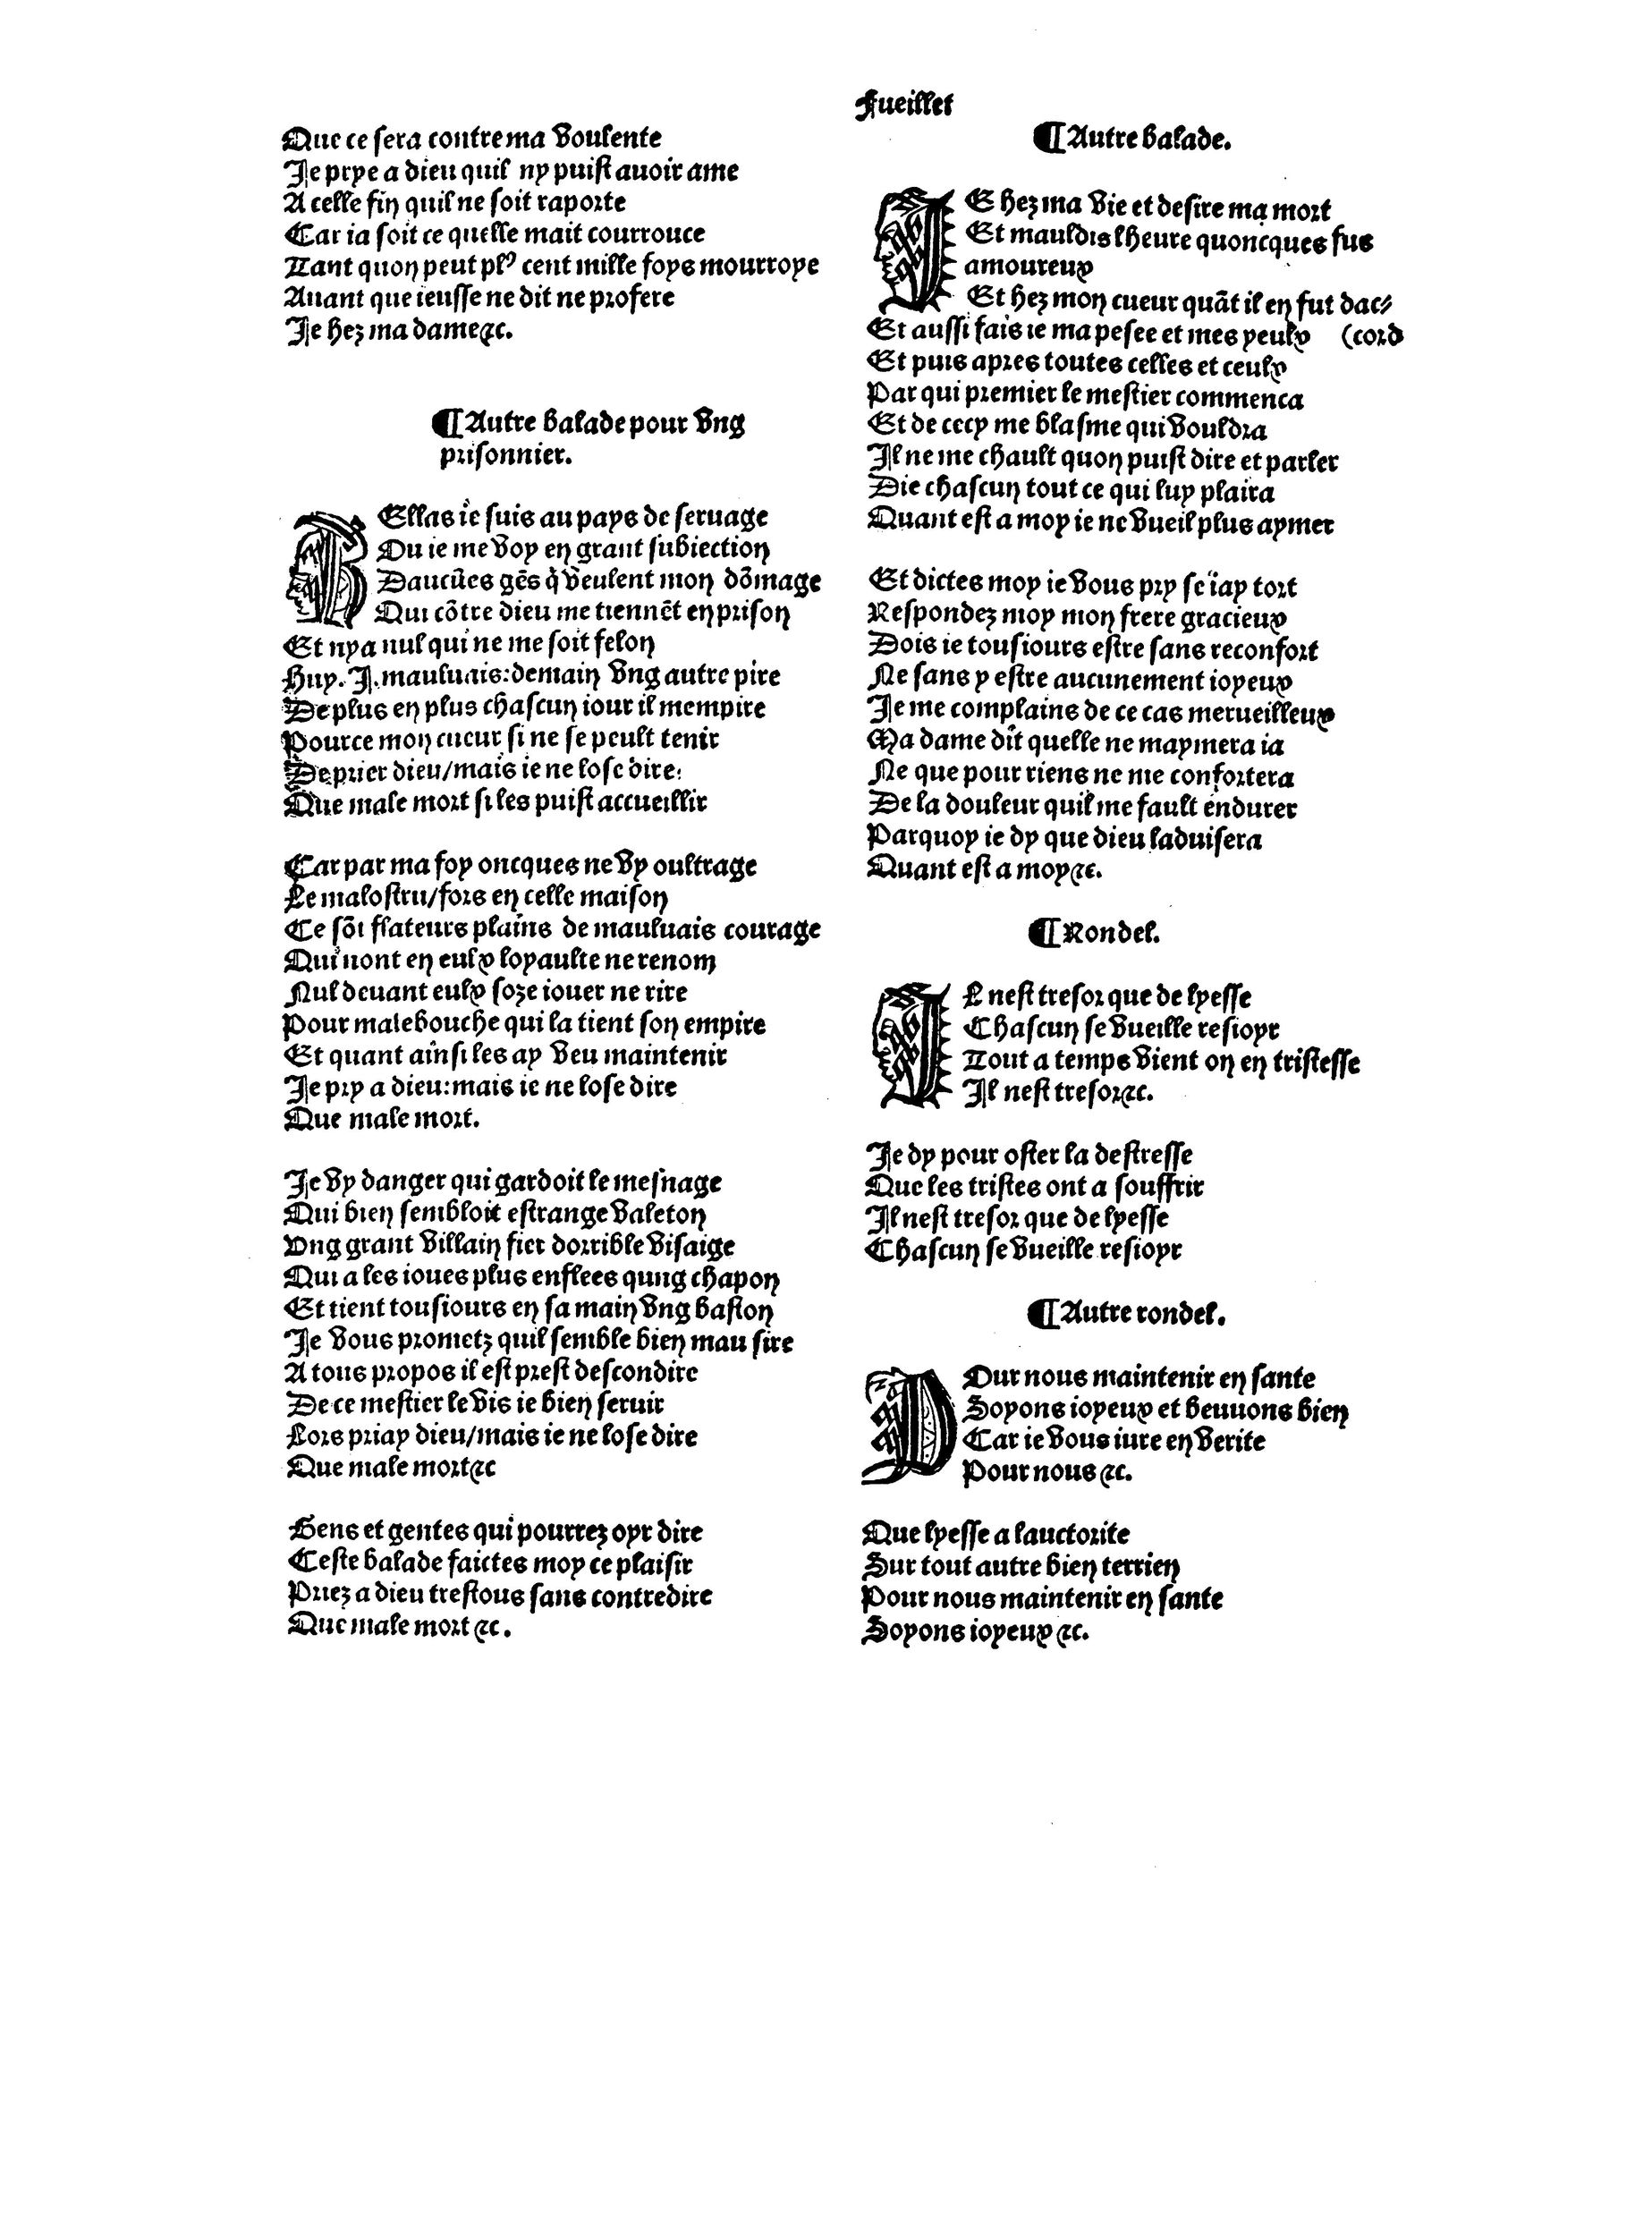 Fueillet
Que ce sera contre ma voulente
Je prye a dieu quil ny puist auoir ame
A celle fin quil ne soit raporte
Car ia soit ce quelle mait courrouce
Tant quon peut plꝰ cent mille foys mourroye
Auant que ieusse ne dit ne profere
Je hez ma dame⁊c.
¶Autre balade pour vng
prisonnier.
HEllas ie suis au pays de seruage
Ou ie me voy en grant subiection
Daucũes gẽs q̃ veulent mon dõmage
Qui cõtre dieu me tiennẽt en prison
Et nya nul qui ne me soit felon
Huy. J. mauluais:demain vng autre pire
De plus en plus chascun iour il mempire
Pource mon cueur si ne se peult tenir
De prier dieu/mais ie ne lose dire:
Que male mort si les puist accueillir
Car par ma foy oncques ne vy oultrage
Le malostru/fors en celle maison
Ce sõt flateurs plains de mauluais courage
Qui nont en eulx loyaulte ne renom
Nul deuant eulx soze iouer ne rire
Pour malebouche qui la tient son empire
Et quant ainsi les ay veu maintenir
Je pry a dieu:mais ie ne lose dire
Que male mort.
Je vy danger qui gardoit le mesnage
Qui bien sembloit estrange valeton
Vng grant villain fier dorrible visaige
Qui a les ioues plus enflees qung chapon
Et tient tousiours en sa main vng baston
Je vous prometz quil semble bien mau sire
A tous propos il est prest descondire
De ce mestier le vis ie bien seruir
Lors priay dieu/mais ie ne lose dire
Que male mort⁊c
Gens et gentes qui pourrez oyr dire
Ceste balade faictes moy ce plaisir
Priez a dieu trestous sans contredire
Que male mort ⁊c.
¶Autre balade.
JE hez ma vie et desire ma mort
Et mauldis lheure quoncques fus
amoureux
Et hez mon cueur quãt il en fut dac⸗
Et aussi fais ie ma pesee et mes yeulx (cord
Et puis apres toutes celles et ceulx
Par qui premier le mestier commenca
Et de cecy me blasme qui vouldra
Il ne me chault quon puist dire et parler
Die chascun tout ce qui luy plaira
Quant est a moy ie ne vueil plus aymer
Et dictes moy ie vous pry se iay tort
Respondez moy mon frere gracieux
Dois ie tousiours estre sans reconfort
Ne sans y estre aucunement ioyeux
Je me complains de ce cas merueilleux
Ma dame dit quelle ne maymera ia
Ne que pour riens ne me confortera
De la douleur quil me fault endurer
Parquoy ie dy que dieu laduisera
Quant est a moy⁊c.
¶Rondel.
IL nest tresor que de lyesse
Chascun se vueille resioyr
Tout a temps vient on en tristesse
Il nest tresor⁊c.
Je dy pour oster la destresse
Que les tristes ont a souffrir
Il nest tresor que de lyesse
Chascun se vueille resioyr
¶Autre rondel.
POur nous maintenir en sante
Soyons ioyeux et beuuons bien
Car ie vous iure en verite
Pour nous ⁊c.
Que lyesse a lauctorite
Sur tout autre bien terrien
Pour nous maintenir en sante
Soyons ioyeux ⁊c.